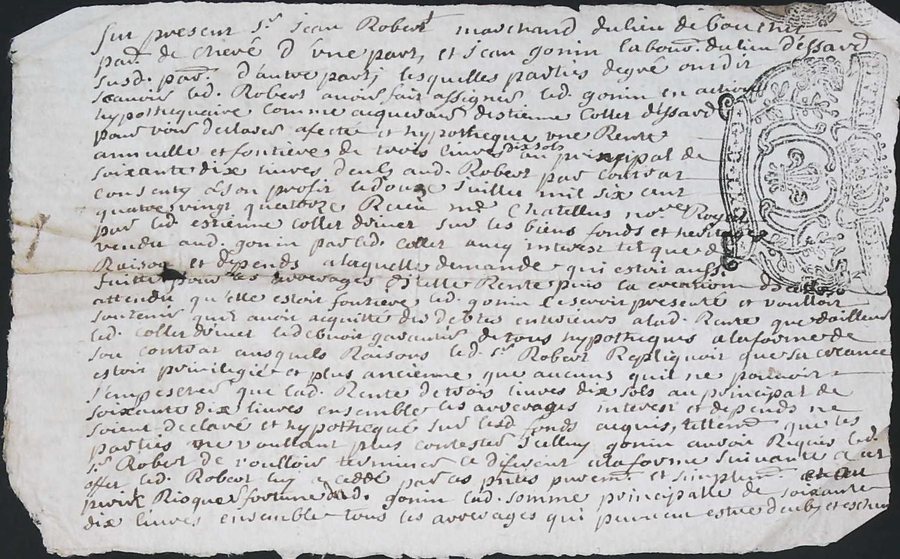 Sur present Sr Jean Robert marchand du lieu de
par. de chevé d'une part et Jean gonin labour. du lieu dessard
susd. par. d'autre part, lesquelles parties de gré ont dit
scauoir led. Robert auoir fait assigner led. gonin en action
hypothequaire comme acquereur destienne Collet dessard
pour voir declarer afecté et hypotheque vne Rente
annuelle et fontiere de trois liures dix sols au principal de
soixante dix liures deub aud. Robert par contrat
consenty a son profit le douze Juillet mil six cent
quatre vingt quatorze Receu me Chatellus nore Royal
par led. estienne collet sur les biens fonds et heritages
vendu aud. gonin par led. collet auec interest tel que de
Raison et depends a laquelle demande qui estoit aussi
pour les arrerages d'icelle Rente puis la
attendu qu'elle estoit fontiere led. gonin presenté et voulloir
soutenir qu'il auoit acquitté des debtes enterieurs a lad. Rente que dailleurs
led. collet de tous hypotheques a la forme de
son contrat ausquels Raisons led. Sr Robert Repliquoit que sa
estoit priuilegié et plus ancienne, que aucuns quil ne pouuoit
s'empescher que lad. Rente de trois liures dix sols au principal de
soixante dix liures ensemble les arrerages interest et depends ne
soient declaré et hypothequé sur lesd. fonds acquis, tellemt que les
parties ne voullant plus contester Icelluy gonin auroit Requis led.
Sr Robert de voulloir terminer ce diferent a la forme suiuante a cet
effet led. Robert luy a cedé par ces pntes purem. et simplem.
Risque fortune aud. gonin lad. somme principalle de soixante
dix liures ensemble tous les arrerages qui peuuent estre deubs et